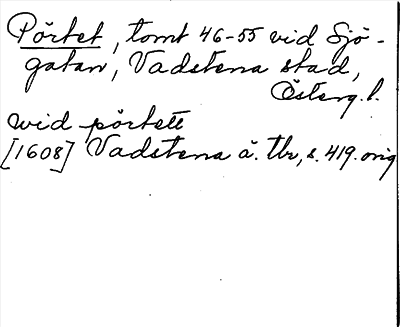 Pörtet, tomt 46-55 vid Sjö-
gatan, Vadstena stad,
Österg. l.
wid pörtett
[1608] Vadstena ä. tb, s. 419. orig